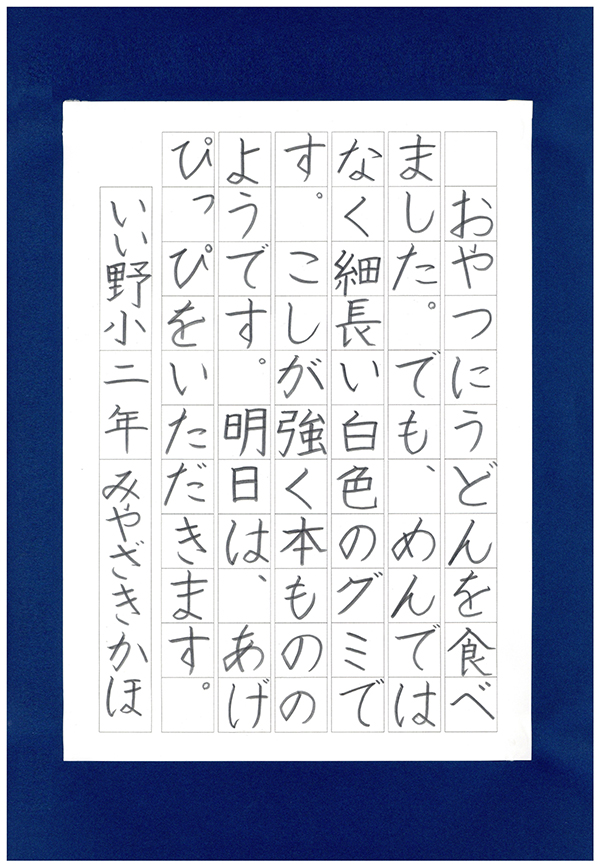 おやつにうどんを食べ
ました。でも、めんでは
なく細長い白色のグミで
す。こしが強く本ものの
ようです。明日は、あげ
ぴっぴをいただきます。
いい野小二年みやざきかほ